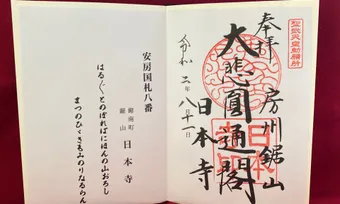 聖武天皇勅願所
奉拝 房州鋸山
大悲圓通閣
日本寺
令和二年八月十一日
安房国札八番
鋸南町
鋸山 日本寺
はる〲とのぼればにほんの山おろし
まつのひゞきもみのりなるらん